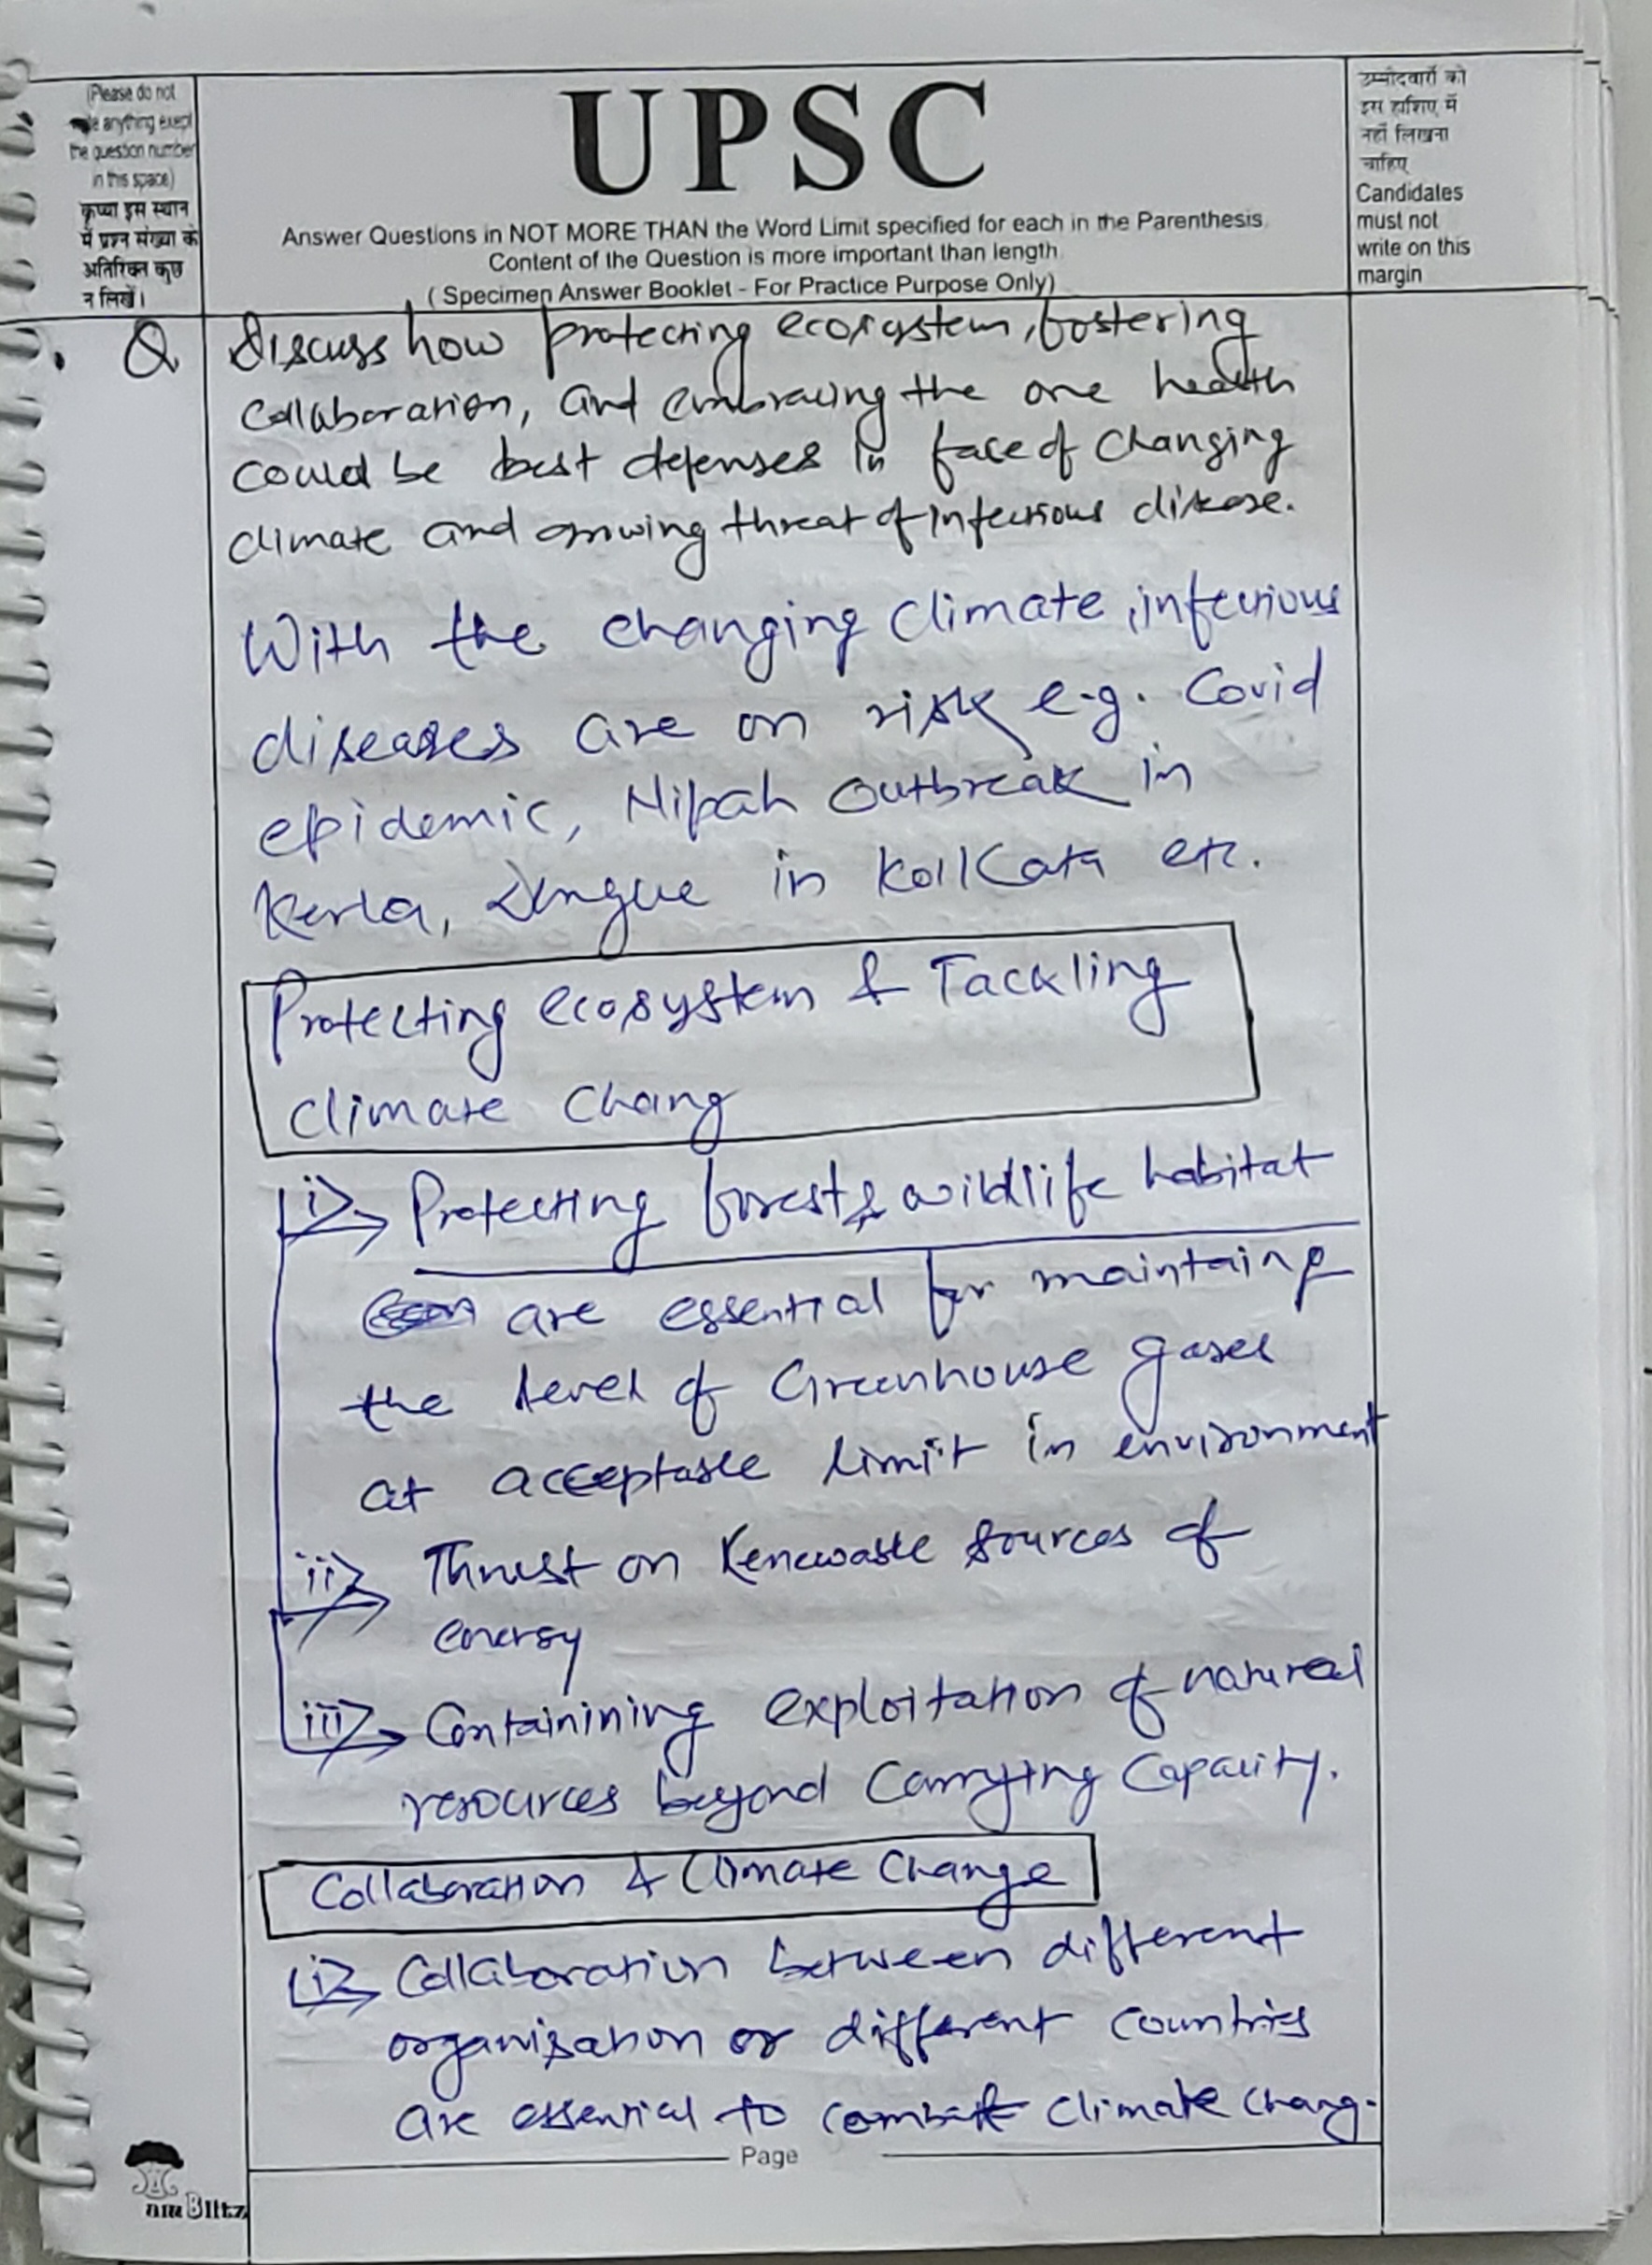 (Please do not
anything exept
the question number
in this space)
कृप्या इस स्थान
में प्रश्न संख्या के
अतिरिक्त कुछ
न लिखें।
UPSC
Answer Questions in NOT MORE THAN the Word Limit specified for each in the Parenthesis.
Content of the Question is more important than length.
( Specimen Answer Booklet - For Practice Purpose Only)
उम्मीदवारों को
इस हाशिए में
नहीं लिखना
चाहिए
Candidales
must not
write on this
margin
Q Discuss how protecting ecosystem, fostering
collaboration, and embracing the one health
could be best defenses in face of changing
climate and growing threat of infectious disease.
With the changing climate, infectious
diseases are on risk e.g. Covid
epidemic, Nipah outbreak in
Kerla, Dengue in Kolkata etc.
Protecting ecosystem & Tackling
climate Chang
i) Protecting forest & wildlife habitat
are essential for maintaing
the level of Greenhouse gases
at acceptable limit in environment
ii) Thrust on Renewable sources of
energy
iii) Containining exploitation of natural
resources beyond Carrying Capacity.
Collaboration & Climate Change
i) Collaboration between different
organisation or different countries
are essential to combat climate chang.
Page
am Blitz